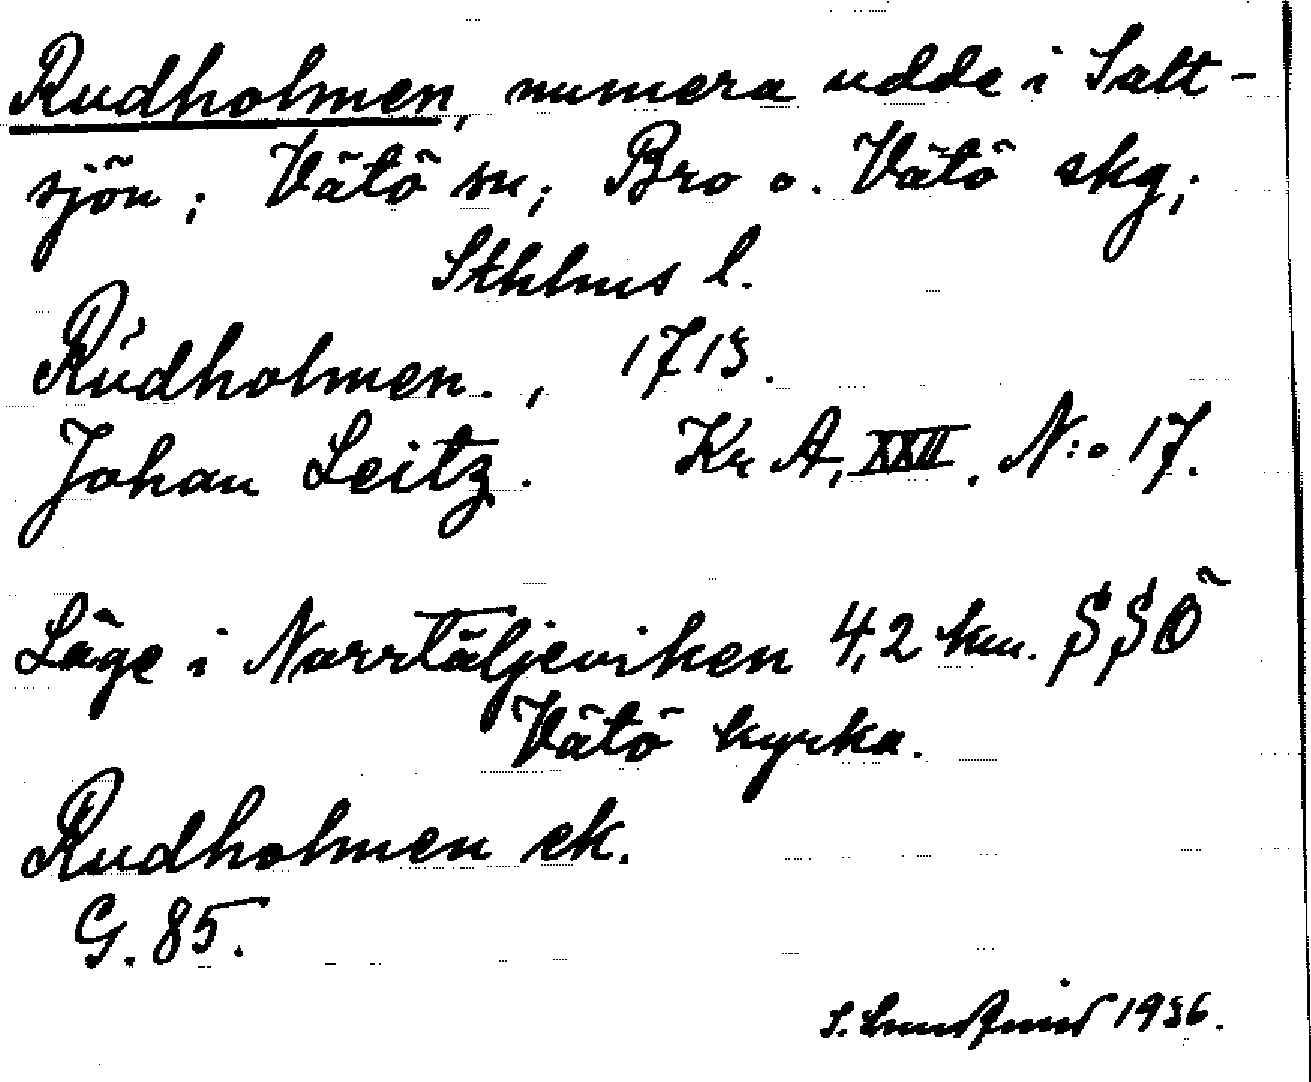 Rudholmen, numera udde i Salt-
sjön; Vätö sn; Bro o. Vätö skg;
Sthlms l.
Rúdholmen., 1715.
Johan Leitz. Kr A, XXII. N:o 17.
Läge i Norrtäljeviken 4,2 km. SSÖ
Vätö kyrka.
Rudholmen ek.
G. 85.
S. 1936.